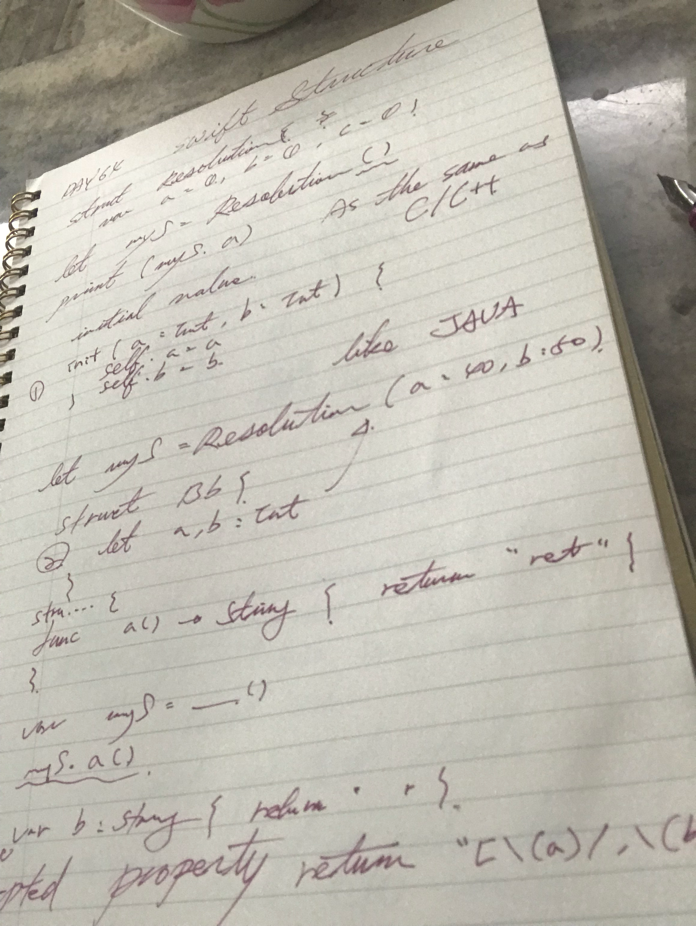 Swift Structure
struct Resolution { }
var a = 0, b = 0, c = 0!
let myS = Resolution ()
print (myS. a)
As the same as
C/C++
initial value.
① init ( a : Int , b : Int ) {
self. a = a
self. b = b.
}
like JAVA
let myS = Resolution ( a : 40, b : 50 ).
struct Bb {
② let a, b : Int
}
stru.... {
func a() → String { return "ret" }
}.
var myS = __ ()
myS. a().
var b : String { return " " }.
property return "[\(a)/,\(b